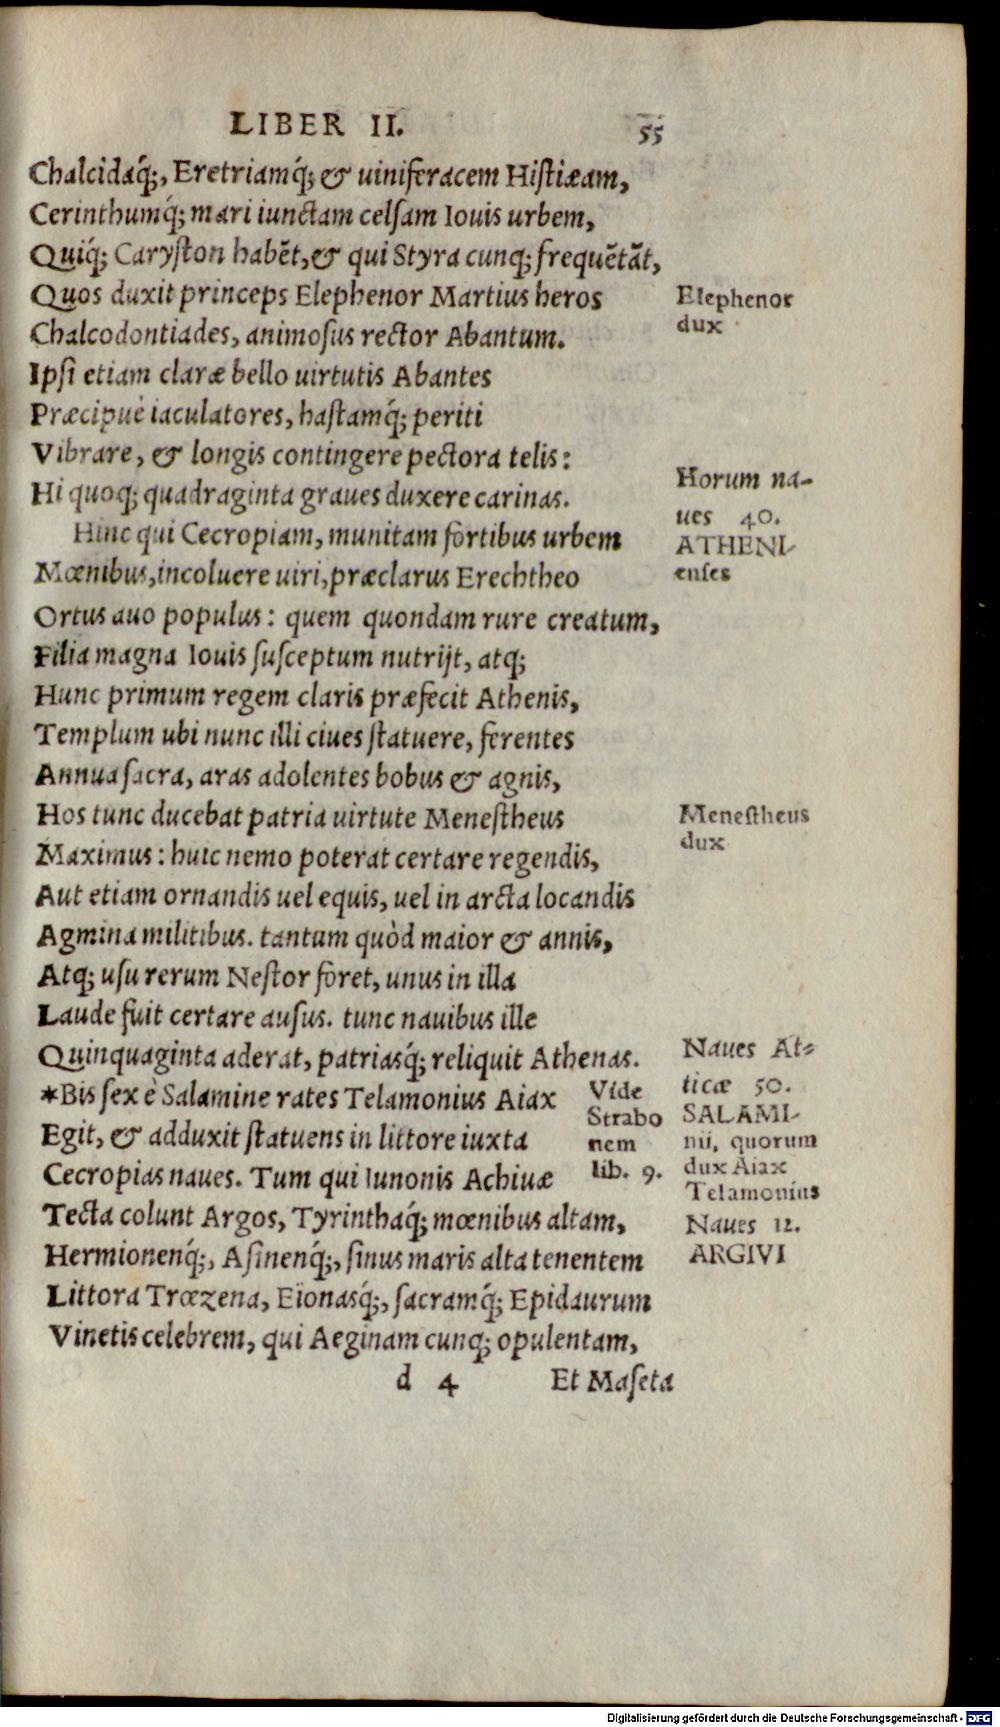 LIBER II. 55
Chalcidaq́;, Eretriamq́; & uiniferacem Histiæam,
Cerinthumq́; mari iunctam celsam Iouis urbem,
Quiq́; Caryston habẽt, & qui Styra cunq; frequẽtãt,
Quos duxit princeps Elephenor Martius heros
Elephenor
dux
Chalcodontiades, animosus rector Abantum.
Ipsi etiam claræ bello uirtutis Abantes
Præcipuè iaculatores, hastamq́; periti
Vibrare, & longis contingere pectora telis:
Hi quoq; quadraginta graues duxere carinas.
Horum na-
ues 40.
Hinc qui Cecropiam, munitam fortibus urbem
ATHENI-
enses
Mœnibus, incoluere uiri, præclarus Erechtheo
Ortus auo populus: quem quondam rure creatum,
Filia magna Iouis susceptum nutrijt, atq;
Hunc primum regem claris præfecit Athenis,
Templum ubi nunc illi ciues statuere, ferentes
Annua sacra, aras adolentes bobus & agnis,
Hos tunc ducebat patria uirtute Menestheus
Menestheus
dux
Maximus: huic nemo poterat certare regendis,
Aut etiam ornandis uel equis, uel in arcta locandis
Agmina militibus. tantum quòd maior & annis,
Atq; usu rerum Nestor foret, unus in illa
Laude fuit certare ausus. tunc nauibus ille
Quinquaginta aderat, patriasq́; reliquit Athenas.
Naues At-
ticæ 50.
*Bis sex è Salamine rates Telamonius Aiax
Egit, & adduxit statuens in littore iuxta
Cecropias naues. Tum qui Iunonis Achiuæ
Vide
Strabo
nem
lib. 9.
SALAMI-
nii, quorum
dux Aiax
Telamonius
Naues 12.
ARGIVI
Tecta colunt Argos, Tyrinthaq́; mœnibus altam,
Hermionenq́;, Asinenq́;, sinus maris alta tenentem
Littora Trœzena, Eionasq́;, sacramq́; Epidaurum
Vinetis celebrem, qui Aeginam cunq; opulentam,
d 4 Et Maseta
Digitalisierung gefördert durch die Deutsche Forschungsgemeinschaft - DFG